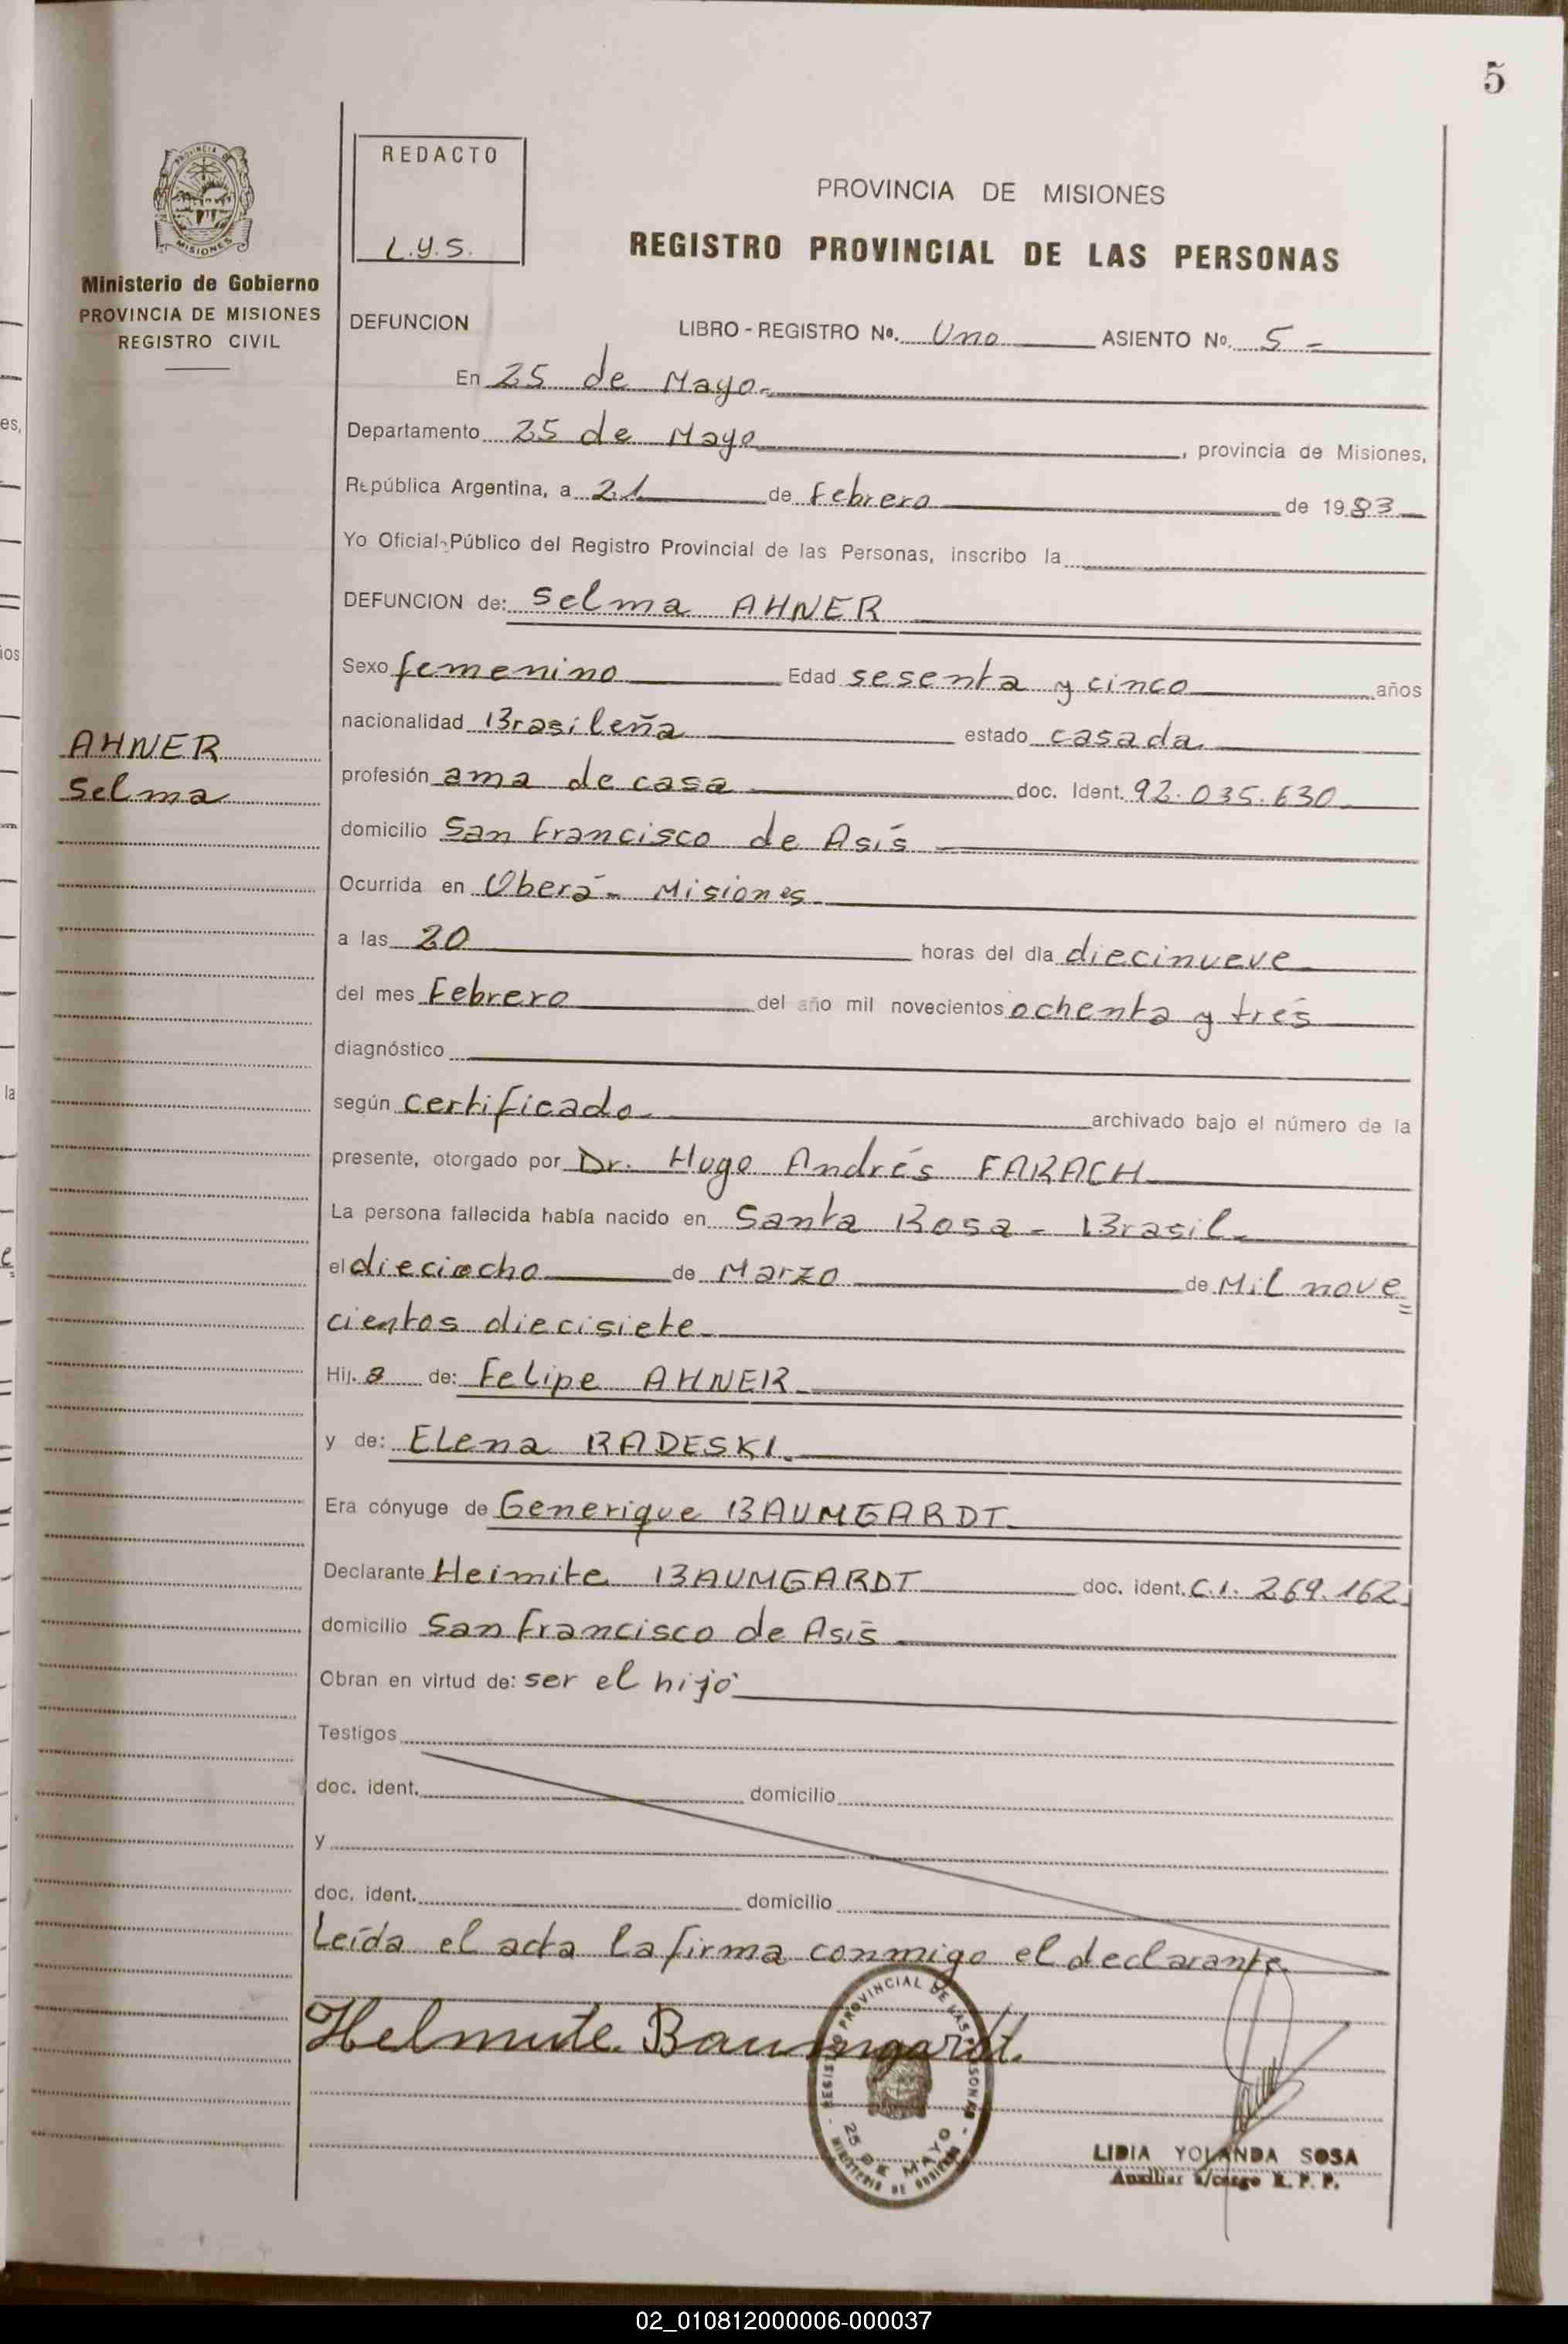 5
REDACTO
L.y.S.
PROVINCIA DE MISIONES
REGISTRO PROVINCIAL DE LAS PERSONAS
PROVINCIA DE
MISIONES
Ministerio de Gobierno
PROVINCIA DE MISIONES
REGISTRO CIVIL
DEFUNCION LIBRO - REGISTRO Nº. Uno ASIENTO Nº. 5 -
En 25 de Mayo.-
Departamento 25 de Mayo, provincia de Misiones,
República Argentina, a 21 de Febrero de 1983
Yo Oficial Público del Registro Provincial de las Personas, inscribo la
DEFUNCION de: Selma AHNER
Sexo femenino Edad sesenta y cinco años
nacionalidad Brasileña estado casada
AHNER
Selma
profesión ama de casa doc. Ident. 92.035.630
domicilio San Francisco de Asís
Ocurrida en Oberá - Misiones
a las 20 horas del día diecinueve
del mes Febrero del año mil novecientos ochenta y tres
diagnóstico
según certificado archivado bajo el número de la
presente, otorgado por Dr. Hugo Andrés FARACH
La persona fallecida había nacido en Santa Rosa - Brasil
el dieciocho de Marzo de Mil nove=
cientos diecisiete
Hij.a de: Felipe AHNER
y de: Elena RADESKI
Era cónyuge de Generique BAUMGARDT
Declarante Heimite BAUMGARDT doc. ident. C.I. 269.162
domicilio San Francisco de Asís
Obran en virtud de: ser el hijo
Testigos
doc. ident. domicilio
y
doc. ident. domicilio
Leída el acta la firma conmigo el declarante
Helmute. Baumgardt.
REGISTRO PROVINCIAL DE LAS PERSONAS
25 DE MAYO
MINISTERIO DE GOBIERNO
LIDIA YOLANDA SOSA
Auxiliar a/cargo R. P. P.
es,
ios
la
e
02_010812000006-000037